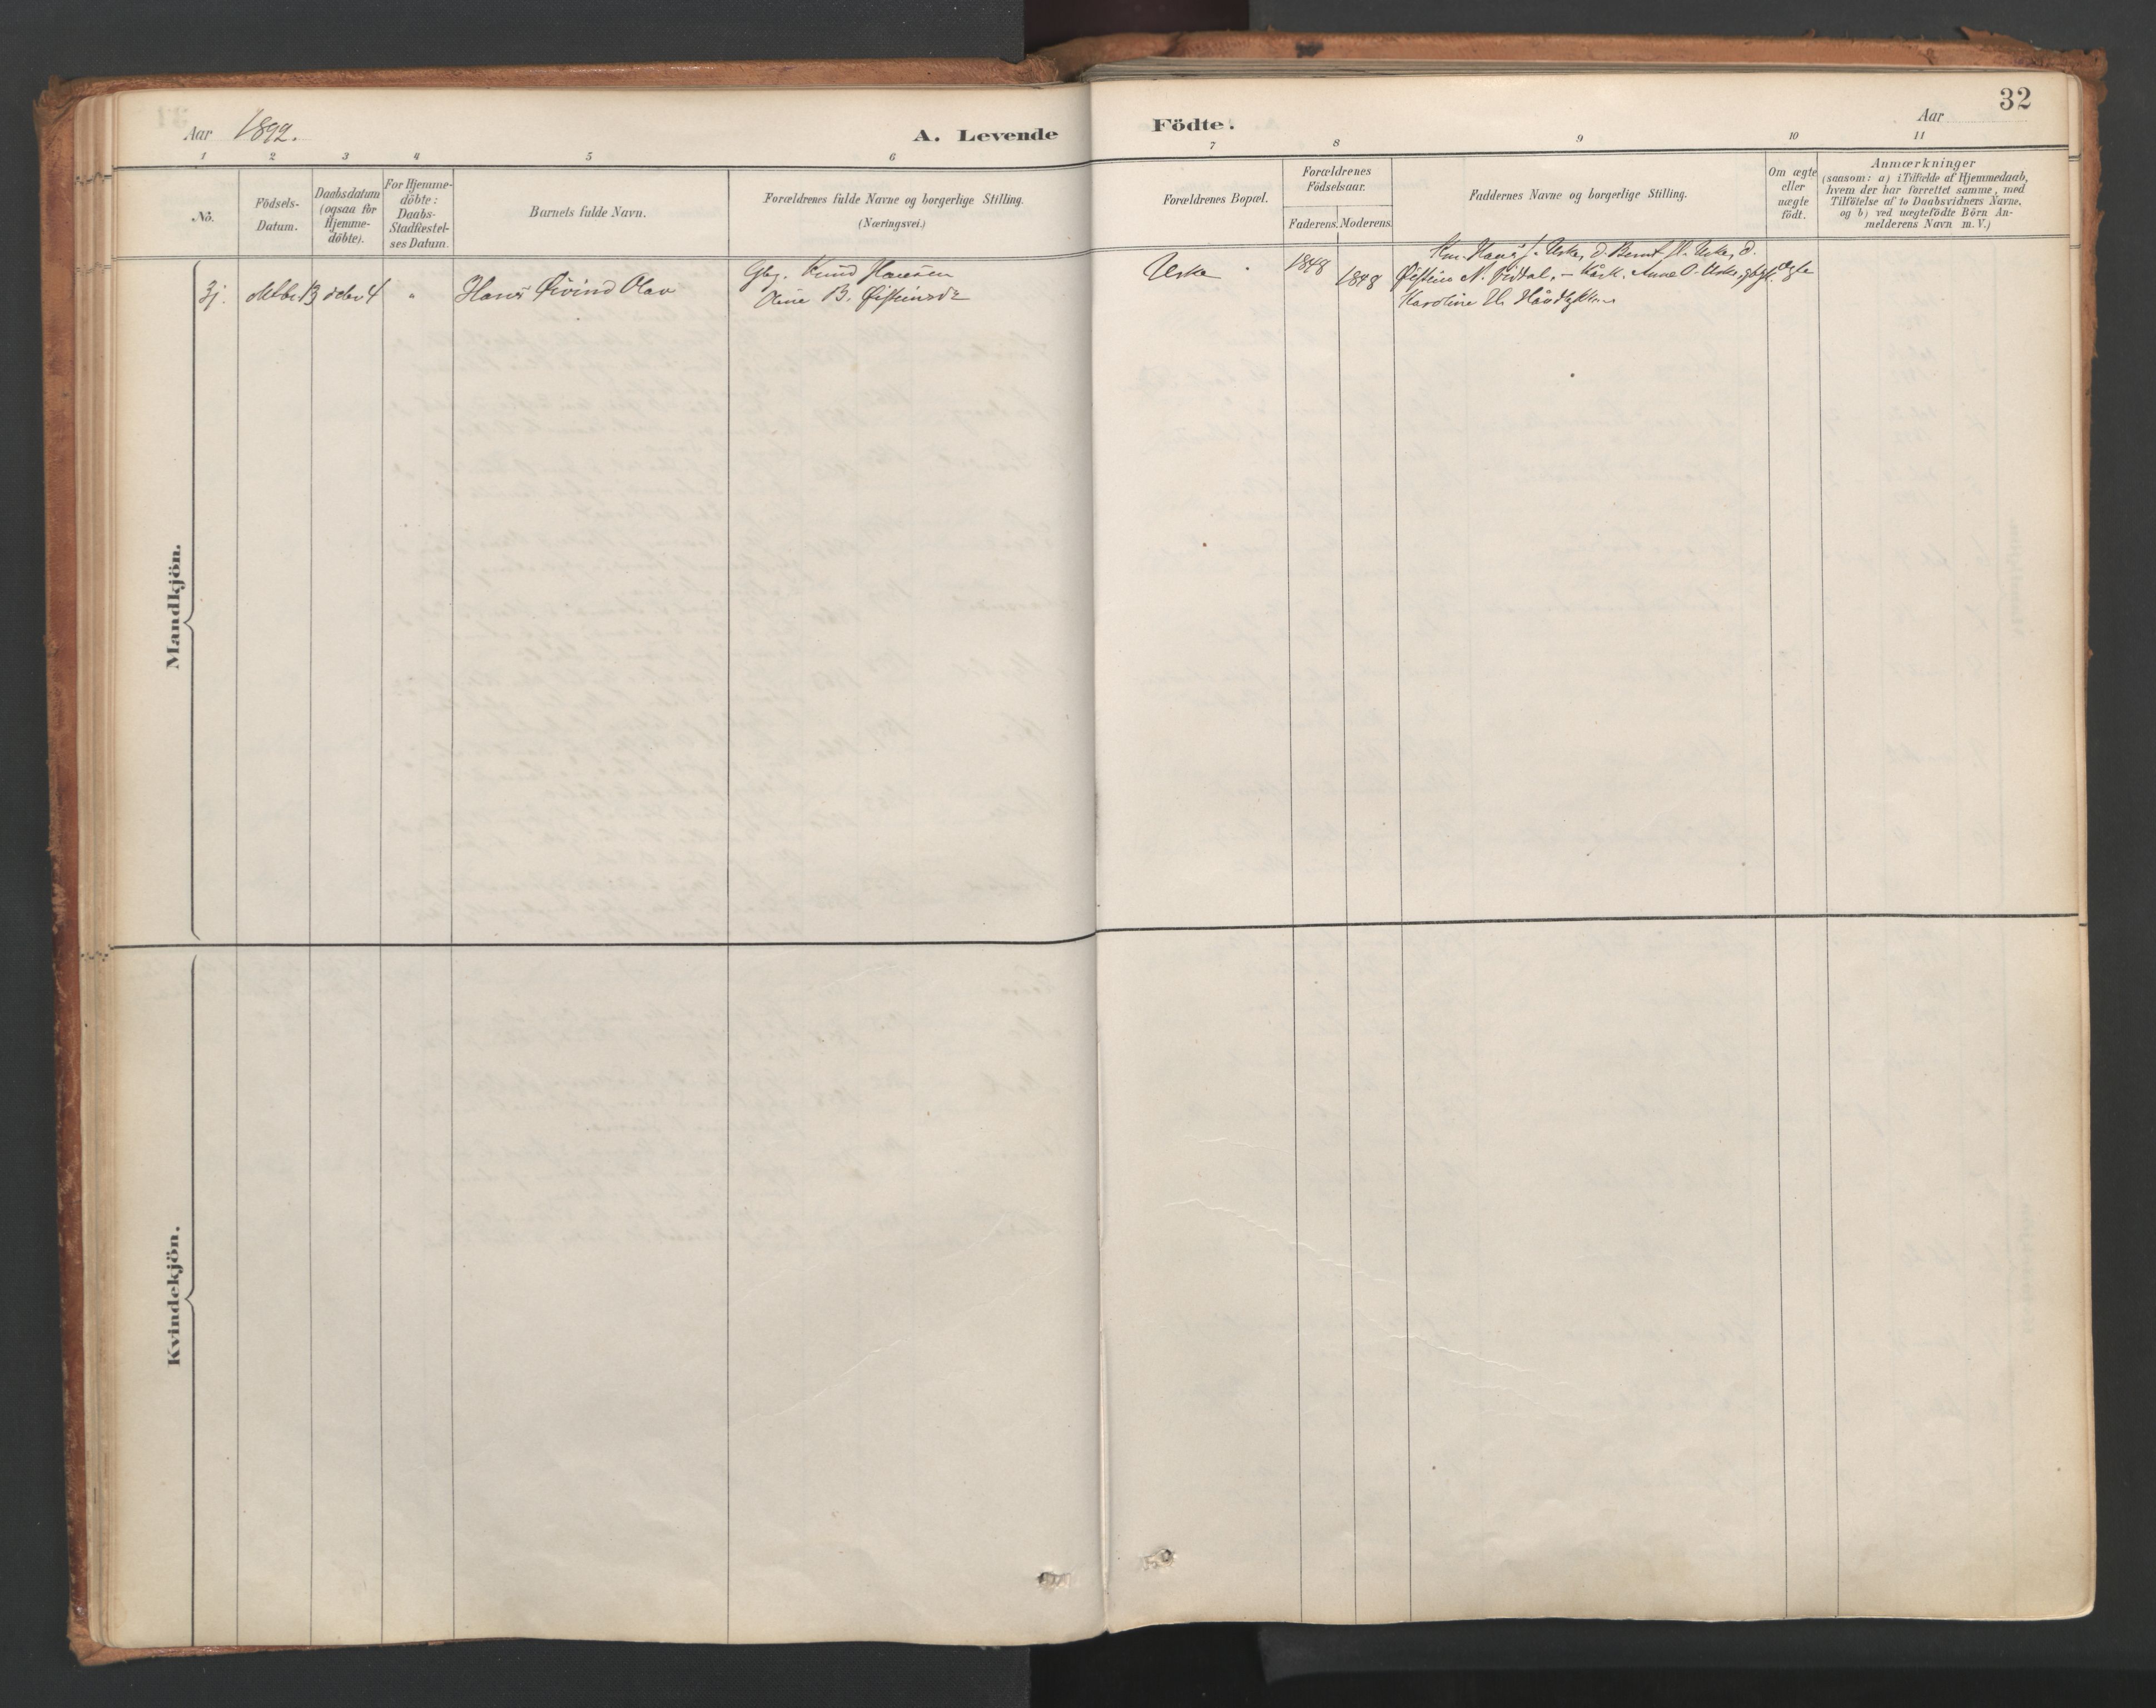 32
Aar 1892.
A. Levende Födte.
Aar
1 2 3 4 5 6 7 8 9 10 11
No.
Födsels-
Datum.
Daabsdatum
(ogsaa for
Hjemme-
döbte).
For Hjemme-
döbte:
Daabs-
Stadfæstel-
ses Datum.
Barnets fulde Navn.
Forældrenes fulde Navne og borgerlige Stilling.
(Næringsvei.)
Forældrenes Bopæl.
Forældrenes
Födselsaar.
Faderens. Moderens.
Faddernes Navne og borgerlige Stilling.
Om ægte
eller
uægte
födt.
Anmærkninger
(saasom: a) i Tilfælde af Hjemmedaab,
hvem der har forrettet samme, med
Tilföielse af to Daabsvidners Navne,
og b) ved uægtefödte Börn An-
melderens Navn m. V.)
Mandkjön.
31. Oktbr 13 " Hans Öivind Olav
Gbg. Knud Hansen
Oline B. Öisteinsdr
Uske
1848
1848
Km. Hans J. Uske, d. Bernt H. Uske, d.
Öistein N. - Kårk. Anne O. Uske,
Karoline H.
Ægte
Kvindekjön.